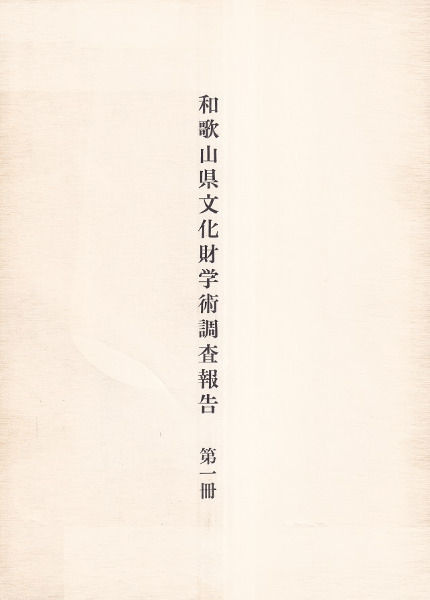 和歌山県文化財学術調査報告 第一冊